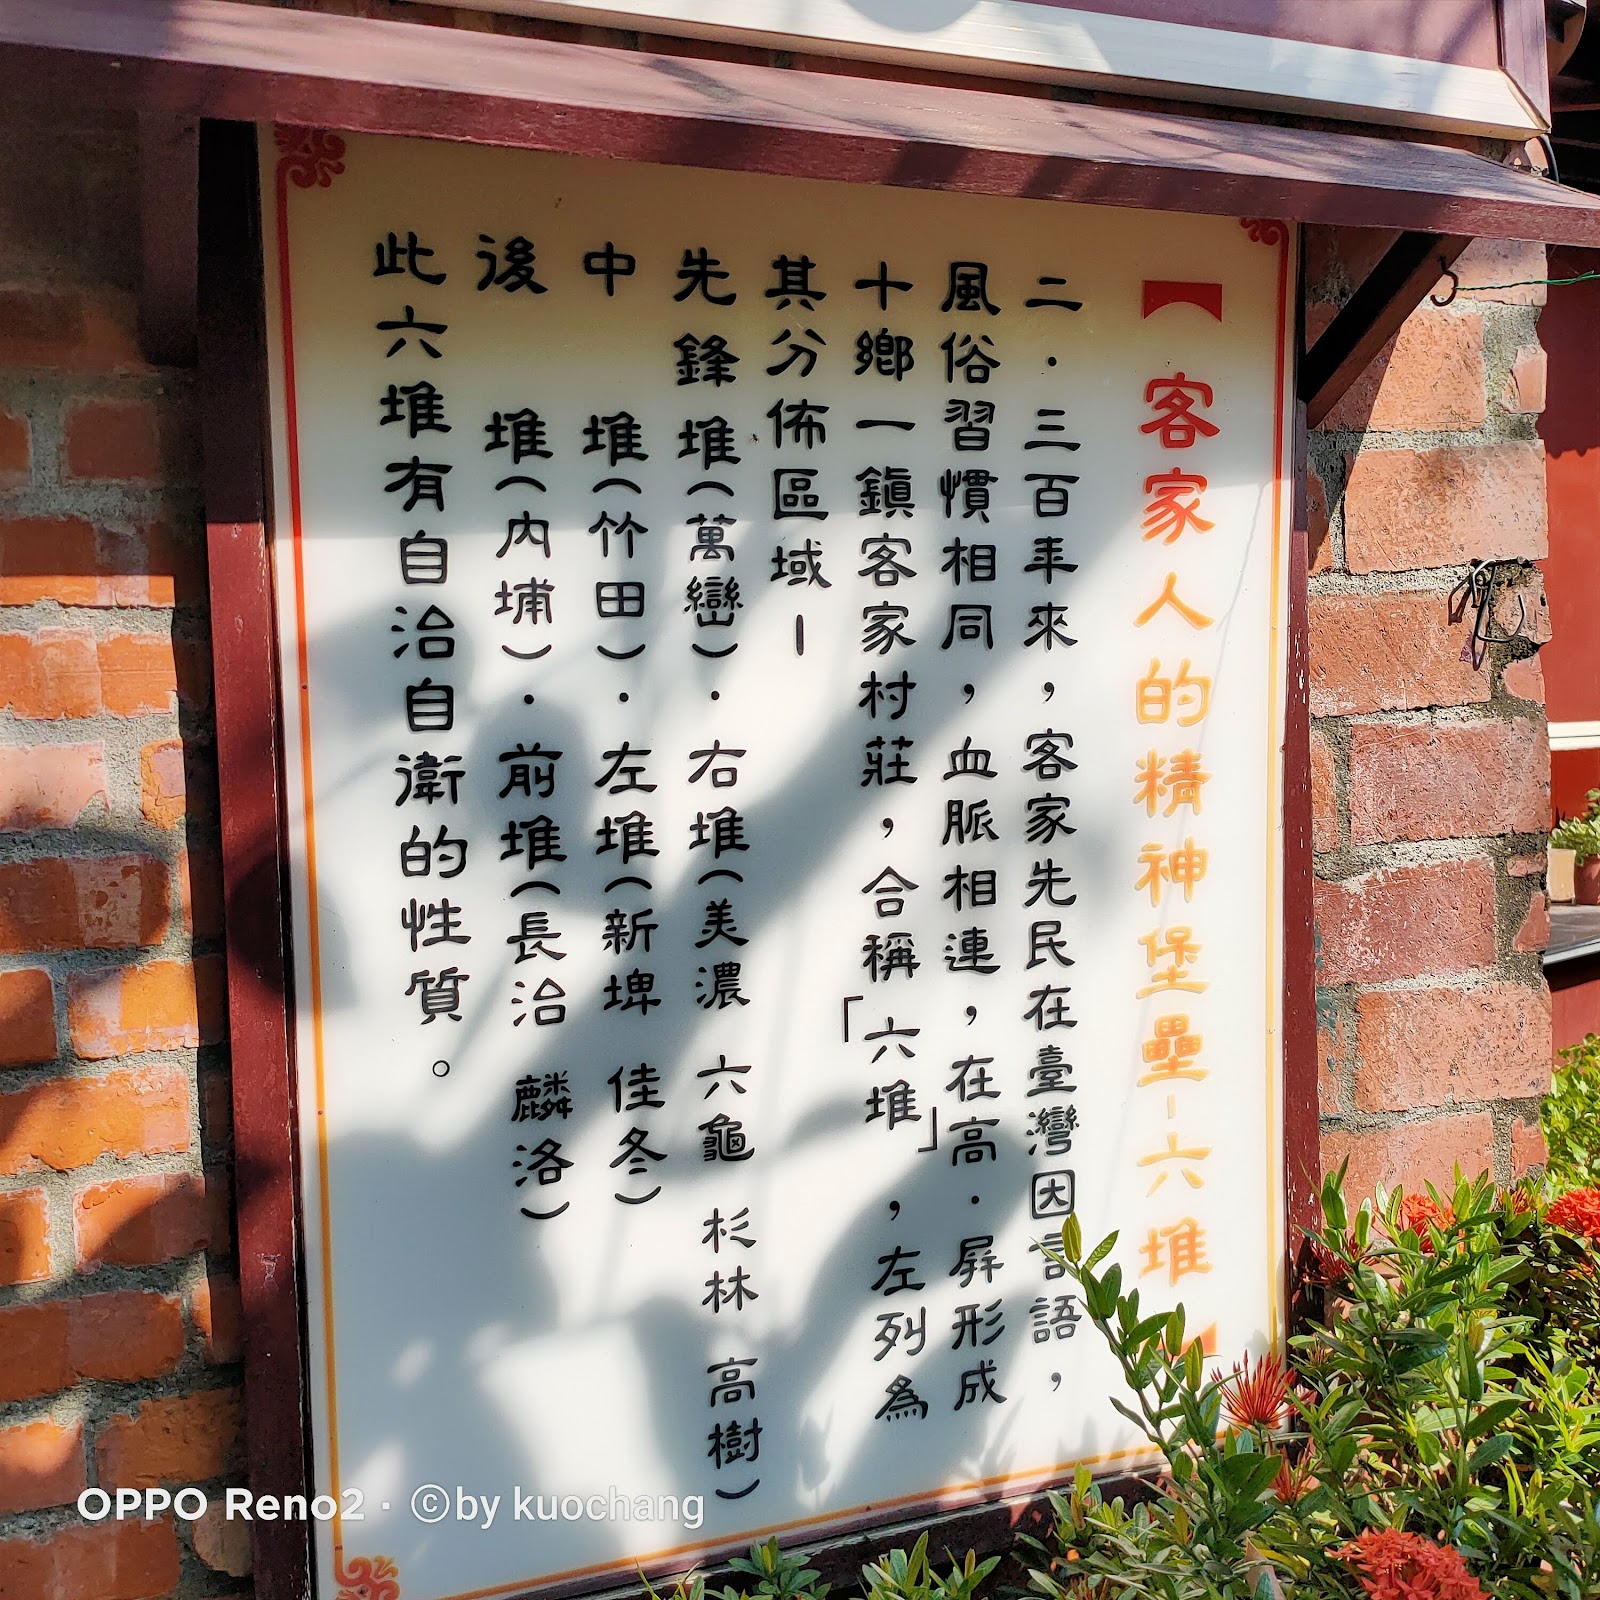 【客家人的精神堡壘-六堆】
二·三百年來，客家先民在臺灣因言語，
風俗習慣相同，血脈相連，在高·屏形成
十鄉一鎮客家村莊，合稱「六堆」，左列為
其分佈區域-
先鋒堆(萬巒)·右堆(美濃 六龜 杉林 高樹)
中堆(竹田)·左堆(新埤 佳冬)
後堆(內埔)·前堆(長治 麟洛)
此六堆有自治自衛的性質。
OPPO Reno2 · ©by kuochang